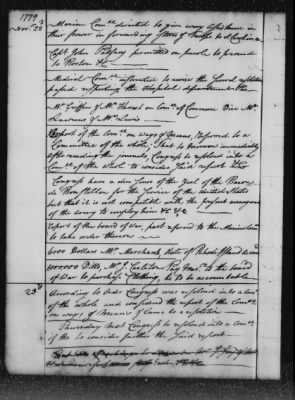 1779
Novr. 22d
Marine Comee. directed to give every assistance in
their power in forwarding Stores & Troops to S. Carolina
Capt. John permitted on parole to proceed
to Boston &c
Medical Comee. instructed to revise the several resolutions
passed respecting the Hospital department
Mr. Griffin & Mr. Forrest on Comee. of Commerce Vice Mr.
Laurens & Mr. Lewis
Report of the Comee. on ways & Means, referred to a
Committee of the whole, That to Morrow immediately
after reading the journals Congress be resolved into a
Comee. of the whole to consider said report
Congress have a due sense of the Zeal of the Baron
de for the Service of the United States
but that it is not compatible with the present arrangement
of the army to employ him &c &c
report of the board of war, part refered to the
to take order therein
6000 Dollars Mr. Marchant, State of Rhode Island to acco
1000000 Ditto, Mr. J. Carleton Pay Mas. to the board
of War to purchase to be accountable
23d
According to order Congress was resolved into a Comee.
of the whole and considered the report of the Comee.
on ways & Means & came to a resolution
Thursday next Congress to be resolved into a Comee.
of the to consider further the said report